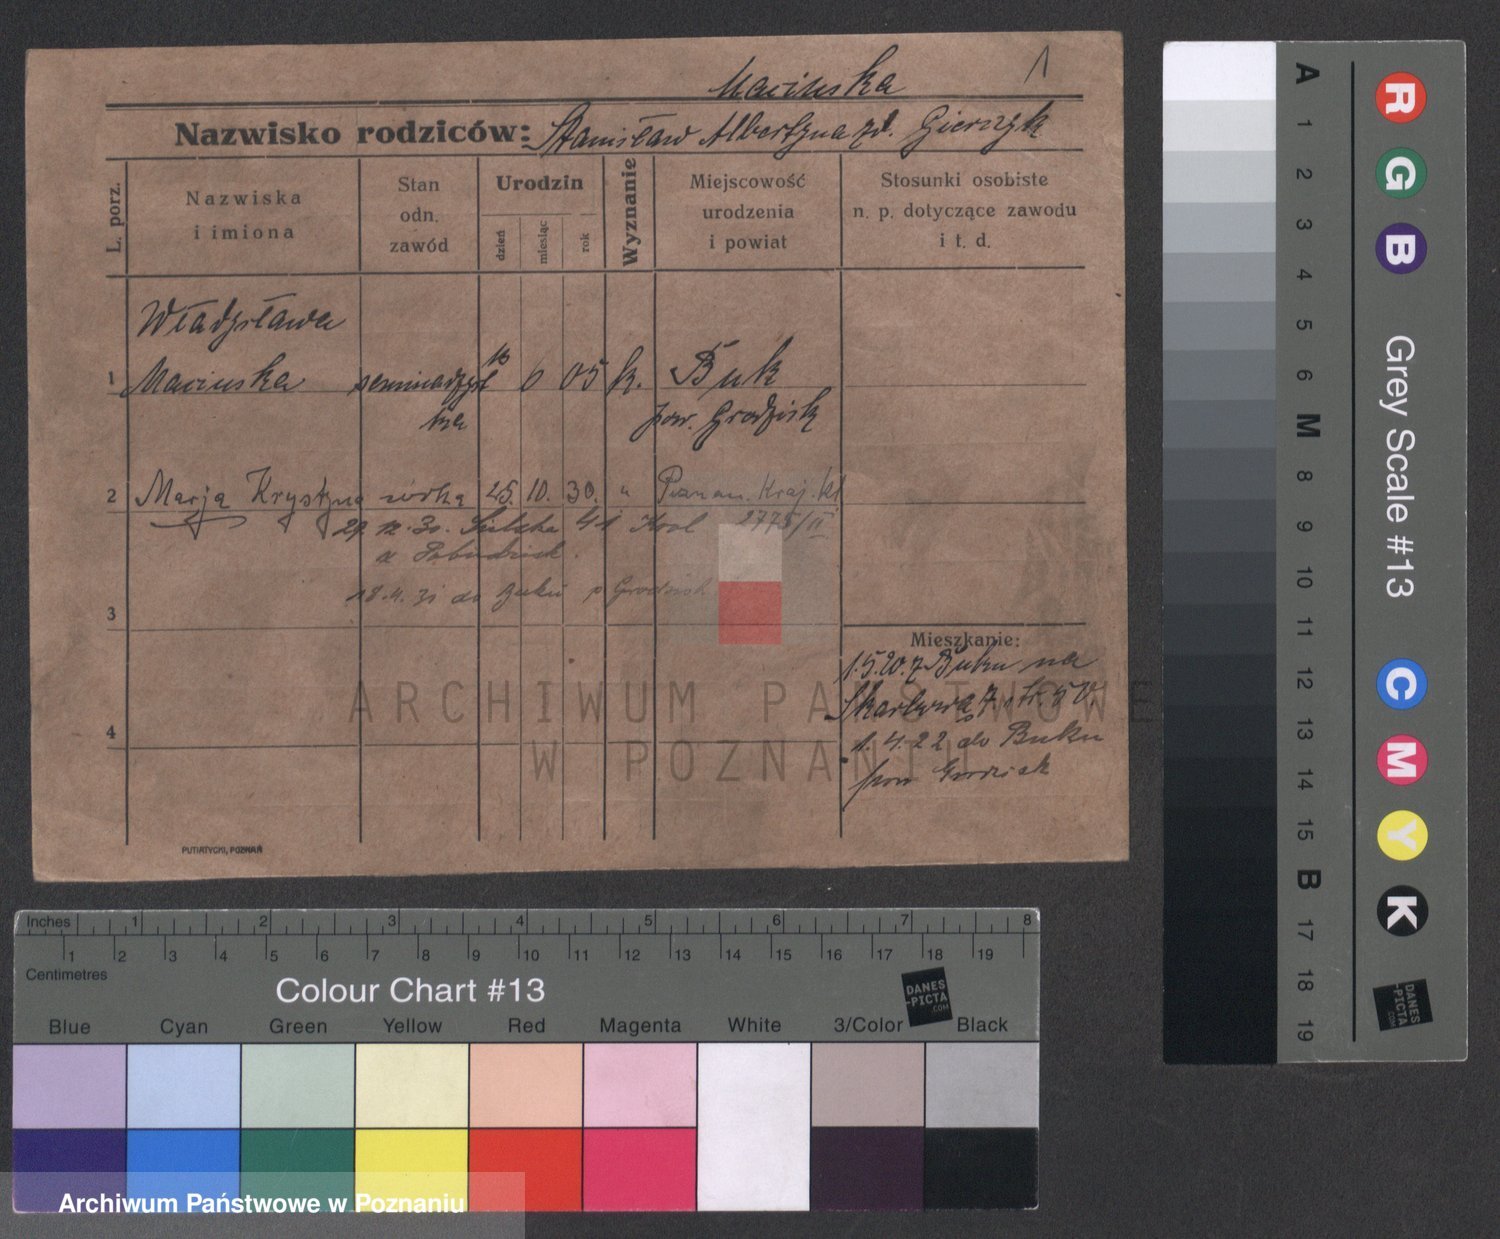 Maciuska
1
Nazwisko rodziców: Stanisław Albertyna zd. Gierczyk
L. porz.
Nazwiska
i imiona
Stan
odn.
zawód
Urodzin
dzień
miesiąc
rok
Wyznanie
Miejscowość
urodzenia
i powiat
Stosunki osobiste
n. p. dotyczące zawodu
i t. d.
Władysława
1 Maciuska 6 05 k. Buk
pow. Grodzisk
2 Marja Krystyna córka 25. 10. 30. " Poznan. Kraj. Kl
29. 12. 30. 41 2775/II
18.4.31 do Buku p Grodzisk
3
Mieszkanie:
1.5.20. z Buku na
4
1.4.22 do Buku
pow Grodzisk
ARCHIWUM PAŃSTWOWE
W POZNANIU
PUTIATYCKI, POZNAŃ
Inches 1 2 3 4 5 6 7 8
1 2 3 4 5 6 7 8 9 10 11 12 13 14 15 16 17 18 19
Centimetres
Colour Chart #13
DANES
-PICTA
.COM
Blue Cyan Green Yellow Red Magenta White 3/Color Black
Archiwum Państwowe w Poznaniu
A 1 2 3 4 5 6 M 8 9 10 11 12 13 14 15 B 17 18 19
R G B
Grey Scale #13
C M Y K
DANES
-PICTA
.COM